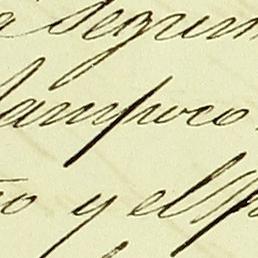 a segun
tampoco
to y el Sr